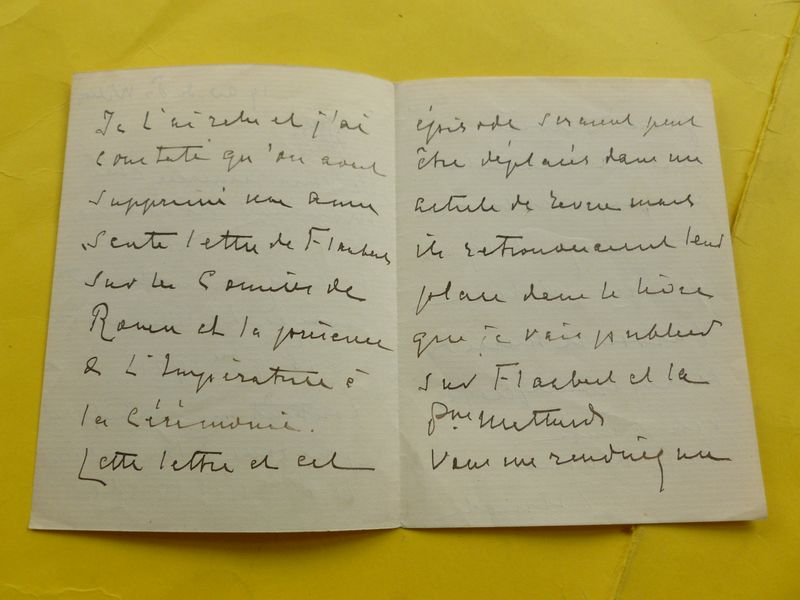 Je l'ai relu et j'ai
constaté qu'on avait
supprimé une amu
sante lettre de Flaubert
sur les Comices de
Rouen et la présence
de l'Impératrice à
la Cérémonie.
Cette lettre et cet
épisode seraient peut
être déplacés dans un
article de revue mais
ils retrouveraient leur
place dans le livre
que je vais publier
sur Flaubert et la
Mathilde
Vous me rendriez un